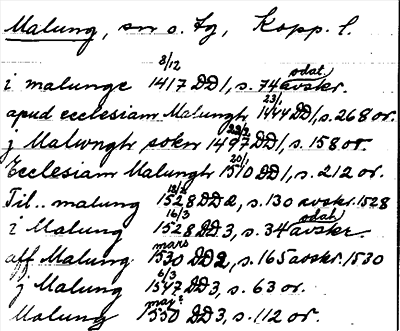 Malung, sn o. tg, Kopp. l.
i malunge 8/12 1417 DD 1, s. 74 odat. avskr.
apud ecclesiam Malungh 23/1 1444 DD 1, s. 268 or.
j Malwngh sokn 1497 DD 1, s. 158 or.
Ecclesiam Malungh 20/1 1510 DD 1, s. 212 or.
Til.. malung 1528 DD 2, s. 130 avskr. 1528
i Malung 16/3 1528 DD 3, s. 34 odat. avskr.
aff Malung mars 1530 DD 2, s. 165 avskr. 1530
j Malung 6/3 1547 DD 3, s. 63 or.
Malung maj? 1550 DD 3, s. 112 or.